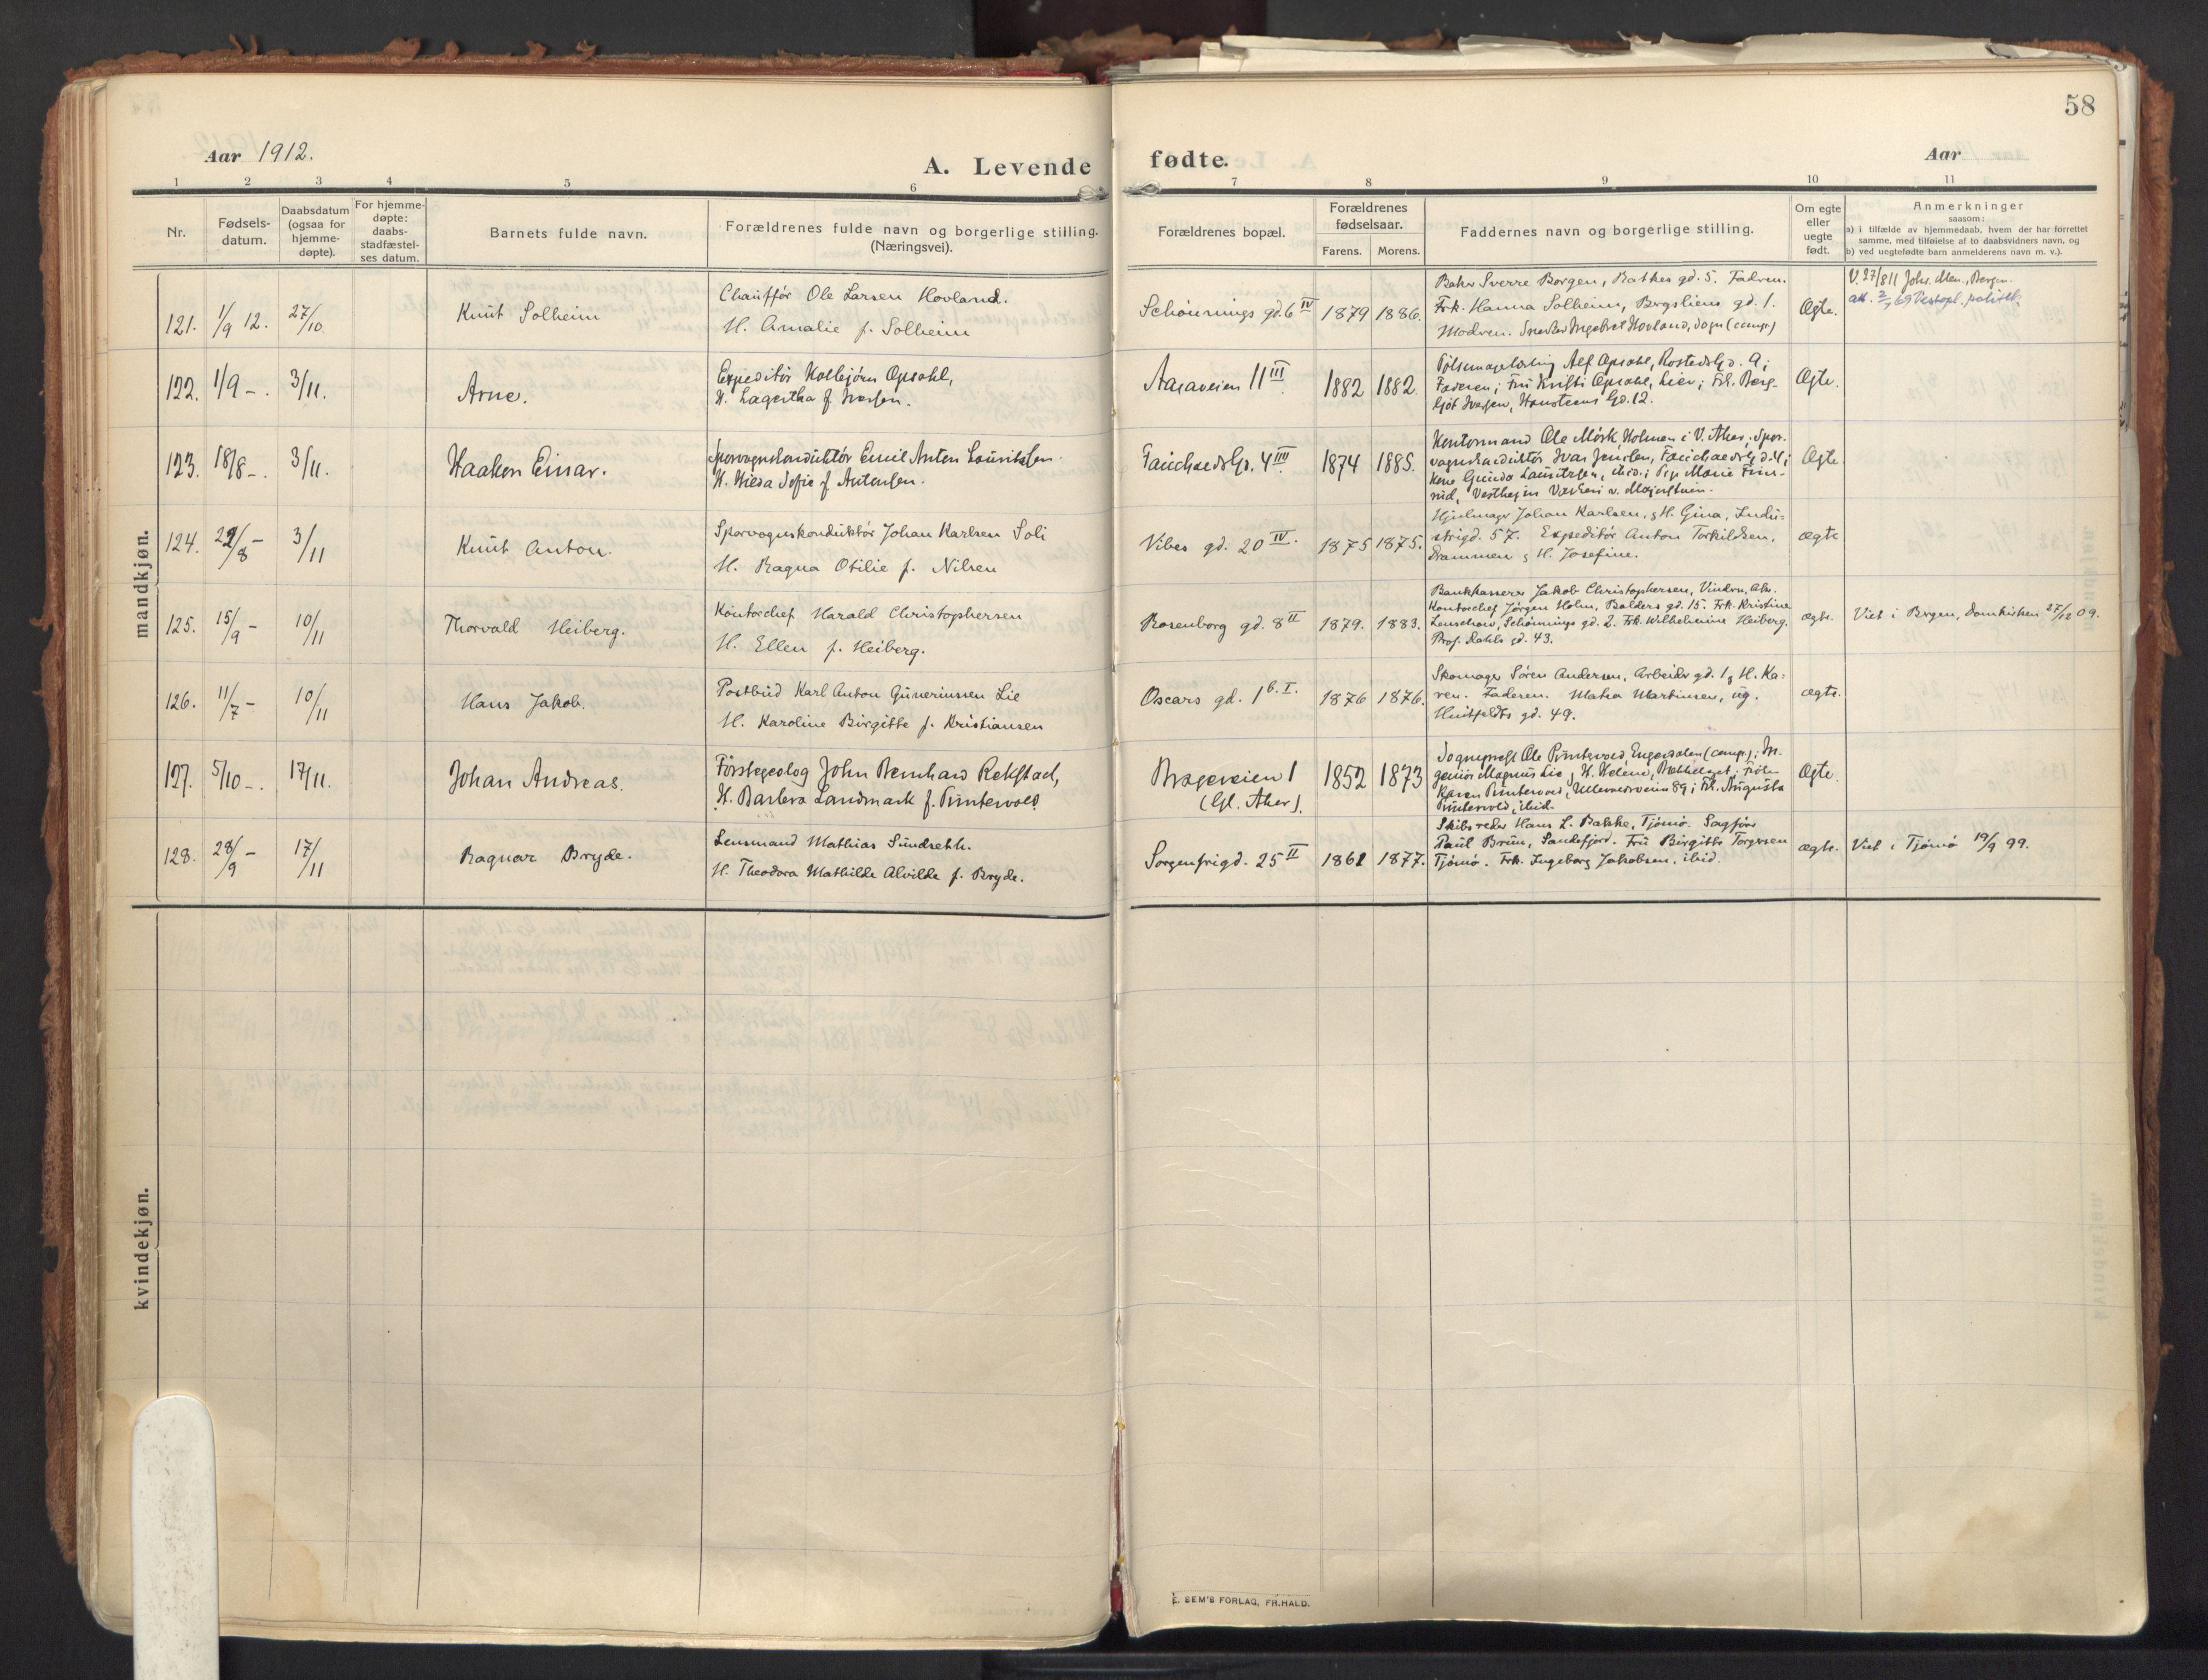 58
Aar 1912.
A. Levende
fødte.
Aar
1 2 3 4 5 6
7 8 9 10 11
Nr.
Fødsels-
datum.
Daabsdatum
(ogsaa for
hjemme-
døpte).
For hjemme-
døpte:
daabs-
stadfæstel-
ses datum.
Barnets fulde navn.
Forældrenes fulde navn og borgerlige stilling.
(Næringsvei).
Forældrenes bopæl.
Forældrenes
fødselsaar.
Farens. Morens.
Faddernes navn og borgerlige stilling.
Om egte
eller
uegte
født.
Anmerkninger
saasom:
a) i tilfælde av hjemmedaab, hvem der har forrettet
samme, med tilføielse af to daabsvidners navn, og
b) ved uegtefødte barn anmelderens navn m. v.).
mandkjøn.
121. 1/9 12. 27/10 Knut Solheim
Chauffør Ole Larsen Hovland.
H. Amalie f. Solheim
Schønnings gd. 6 IV 1879 1886.
Baker Sverre Borgen, Rathkes gd. 5. Fadren.
Frk. Hanna Solheim, Bogsliens gd. 1.
Modren. Snedker Ingebret Hovland, Sogn (comp.)
Øgte.
V. 27/8 11 Johs. Men., Bergen.
att. 2/7 69 Vestopl. politik.
122. 1/9 -. 3/11. Arne.
Expeditør Kolbjørn Opsahl,
H. Lagertha f. Iversen.
Aasaveien 11 III 1882 1882.
Alf Opsahl, Rosteds Gd. 9;
Faderen; Fru Kristi Opsahl, Lier; Frk. Berg-
ljot Iversen, Hansteens Gd. 12.
Øgte.
123. 18/8 -. 3/11. Haakon Einar.
Sporvognskonduktør Emil Anton Lauritzsen.
H. Hilda Sofie f. Antonsen.
Fauchalds Gd. 4 III 1874 1885.
Kontormand Ole Mørk, Holmen i V. Aker; Spor-
vognskonduktør Ivar Jensen, Fauchalds Gd. 4;
Kone Gunda Lauritzsen, ibid.; Pige Marie Finn-
rud, Vestheim v. Majorstuen.
Øgte
124. 22/8 - 3/11 Knut Anton.
Sporvognskonduktør Johan Karlsen Soli
H. Ragna Otilie f. Nilsen
Vibes gd. 20 IV. 1875 1875.
Hjulmager Johan Karlsen, & H. Gina, Indu-
strigd. 57. Expeditør Anton Torkildsen,
Drammen & H. Josefine.
ægte
125. 15/9 - 10/11 Thorvald Heiberg.
Kontorchef Harald Christophersen
H. Ellen f. Heiberg.
Rosenborg gd. 8 II 1879. 1883.
Bankkasserer Jakob Christophersen, Vindern, Aker.
Kontorchef Jörgen Holm, Balders gd. 15. Frk. Kristine
Lenschow, Schønnings gd. 2. Frk. Wilhelmine Heiberg.
Prof. Dahls gd. 43.
ægte.
Viet i Bergen, Domkirken 27/12 09.
126. 11/7 - 10/11 Hans Jakob.
Postbud Karl Anton Gunerinssen Lie
H. Karoline Birgitte f. Kristiansen
Oscars gd. 1 b. I. 1876 1876.
Skomager Sören Andersen, Arbeider gd. 1, & H. Ka-
ren. Faderen. Matea Martinsen, ug.
Huitfeldts gd. 49.
ægte.
127. 5/10 -. 17/11. Johan Andreas.
Förstegeolog John Bernhard Rekstad,
H. Barbra Landmark f. Puntervold
Brageveien 1
(Gl. Aker). 1852 1873
Sogneprest Ole Puntervold, Engerdalen (comp.); In-
geniør Magnus Lie & H. Helene, Bækkelaget; Frøken
Karen Puntervold, Ullevaalsveien 89; Frk. Augusta
Puntervold, ibid.
Øgte.
128. 28/9 - 17/11 Ragnar Bryde.
Lensmand Mathias Sundseth.
H. Theodora Mathilde Alvilde f. Bryde.
Sorgenfrigd. 25 II 1861 1877.
Skibsreder Hans L. Bakke, Tjömö. Sagfører
Paul Bruu, Sandefjord. Fru Birgitte Torgersen
Tjömö. Frk. Ingeborg Jakobsen, ibid.
ægte.
Viet i Tjömö 19/9 99.
kvindekjøn.
E. SEM'S FORLAG, FR.HALD.